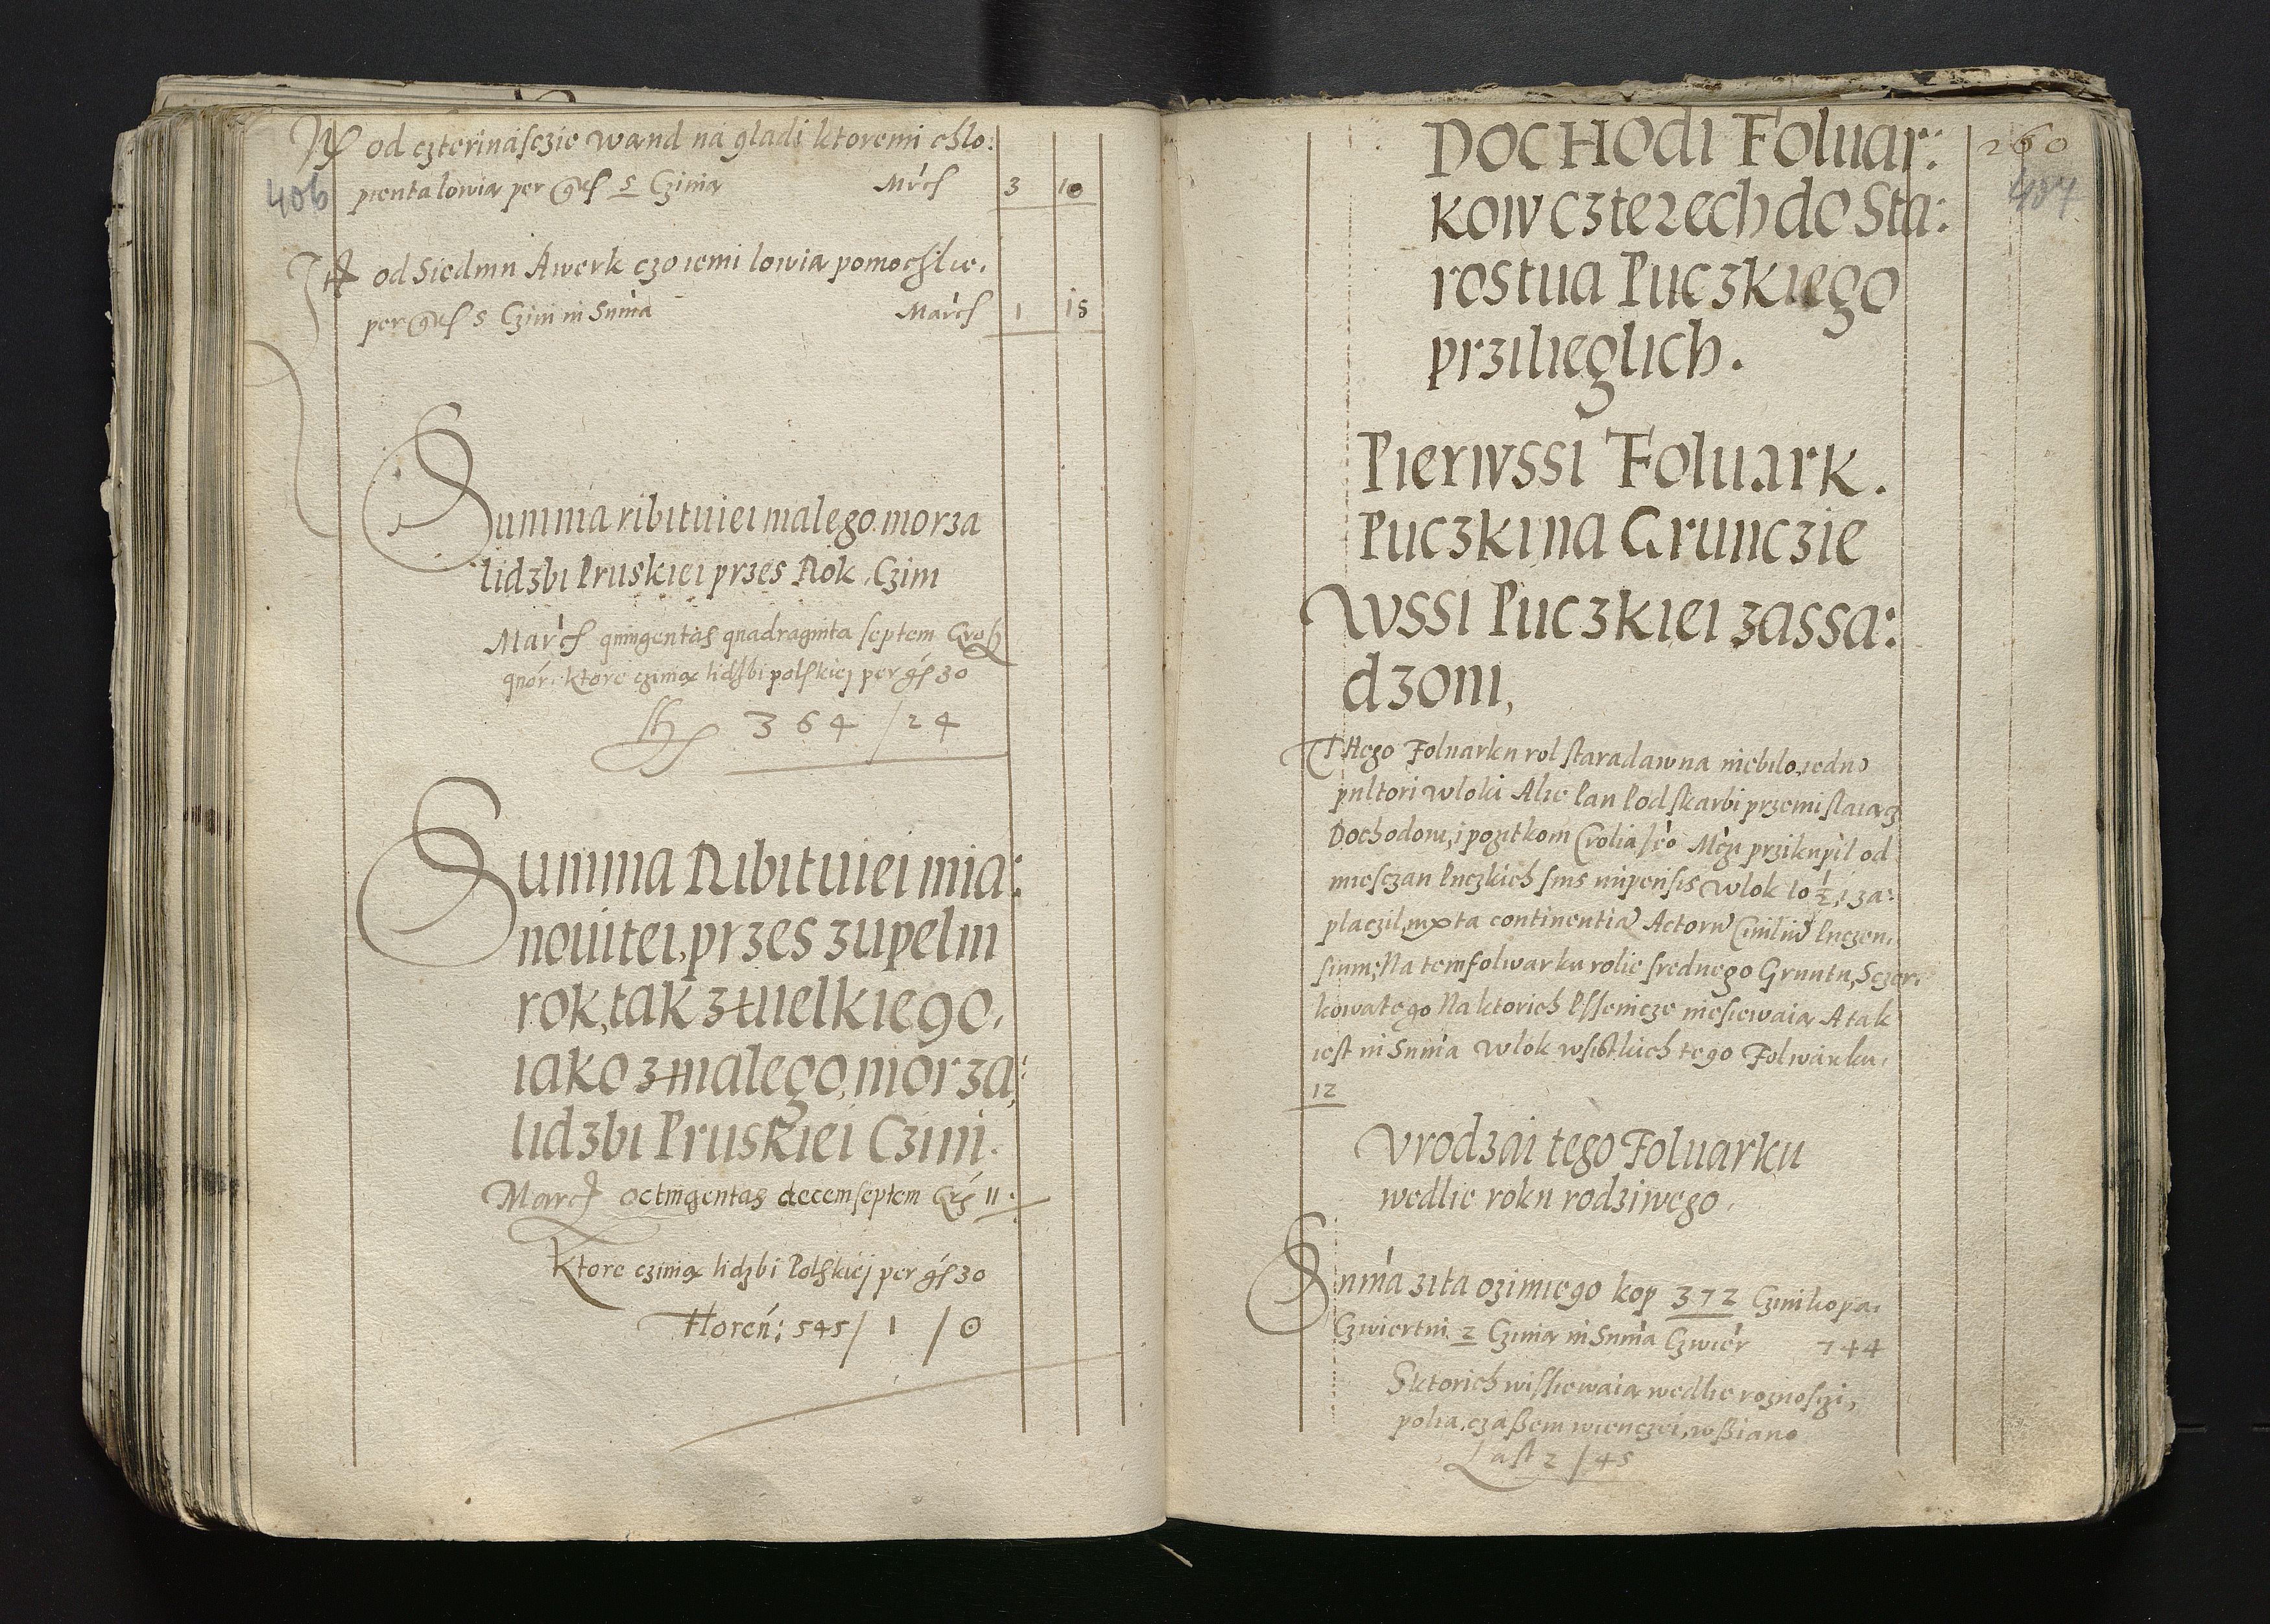 It od czterinasczie wand na gladi ktoremi chlo:
406
pienta lowia per Grs 5 Czinia Mrcs 3 10
It od Siedmn Awerk czo iemi lowia pomochlie.
per Grs 5 Czini in Suma Marcs 1 15
Summa ribituiei malego morza
lidzbi Pruskiei przes Rok Czim
Marcs quingentas quadraginta septem Gross
quor. ktore czinia lidzbi polskiej per gs 30
364 / 24
Summa Ribituiei mia:
nouitei, przes zupelni
rok, tak z wielkiego,
iako z malego, morza,
lidzbi Pruskiei Czini.
Marcs octingentas decem septem Grs 11.
Ktore czinia lidzbi Polskiej per gs 30
Floren: 545 / 1 / 0
260
407
Dochodi Foluar:
kow czterech do Sta:
rostua Puczkiego
przilieglich.
Pierwssi Foluark.
Puczki na Grunczie
Wssi Puczkiei zassa:
dzoni,
Ttego Foluarku rol staradawna niebilo, iedno
pultori wloki Alie Pan Podskarbi przemislaiacz
Dochodom, i pozitkom Crolia Jeo Mczi przikupil od
miesczan Puczkich suis impensis Wlok 10 ½, i za:
placzil, iuxta continentia Actoru Ciuiliu Puczen,
sium, Na tem folwarku rolie sredniego Gruntu, Sczer,
kowatego Na ktorich Pssenicze niesiewaia A tak
iest in Suma Wlok wsistkich tego Folwarku,
12
Vrodzai tego Foluarku
wedlie roku rodziwego.
Suma zita ozimiego kop 372 Czini kopa,
Czwiertni 2 Czinia in Suma Czwier 744
S ktorich wissiewaia wedlie roznosczi,
polia, czassem wienczei, wssiano
Last 2 / 45